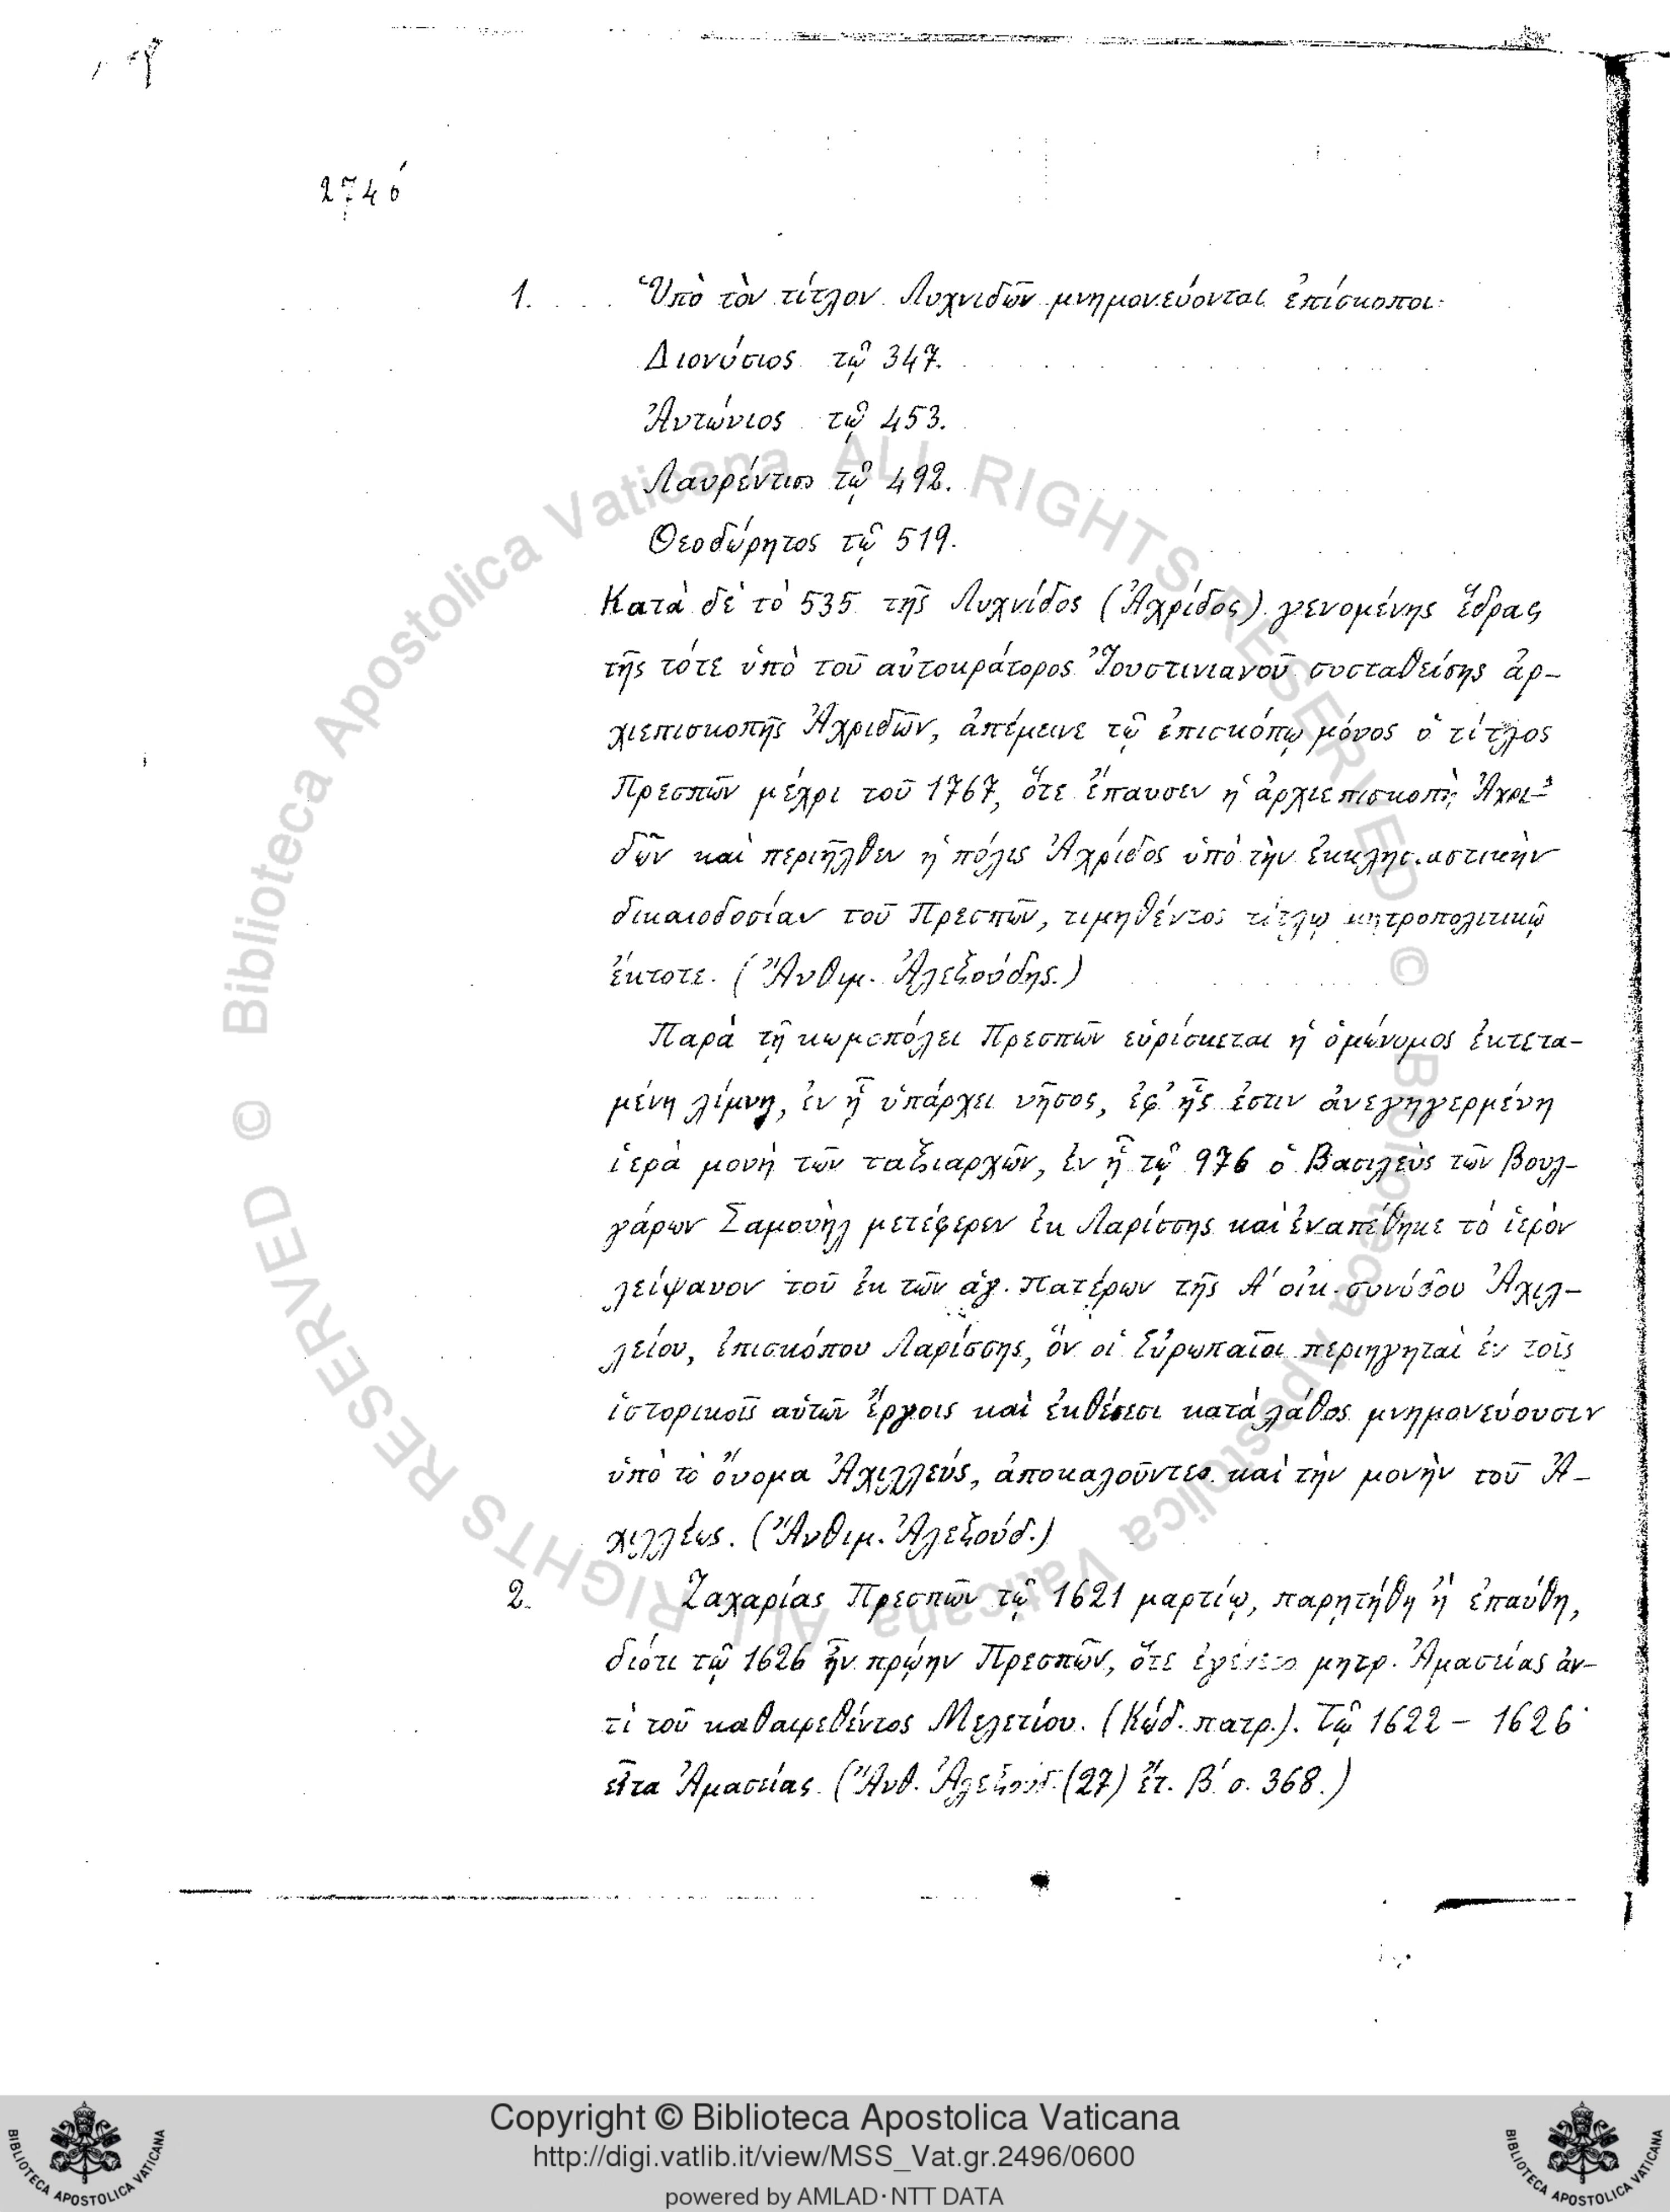 2746
1. Ὑπὸ τὸν τίτλον Λυχνιδῶν μνημονεύονται ἐπίσκοποι·
Διονύσιος τῷ 347.
Ἀντώνιος τῷ 453.
Λαυρέντιος τῷ 492.
Θεοδώρητος τῷ 519.
Κατὰ δὲ τὸ 535 τῆς Λυχνίδος (Ἀχρίδος) γενομένης ἕδρας
τῆς τότε ὑπὸ τοῦ αὐτοκράτορος Ἰουστινιανοῦ συσταθείσης ἀρ-
χιεπισκοπῆς Ἀχριδῶν, ἀπέμεινε τῷ ἐπισκόπῳ μόνος ὁ τίτλος
Πρεσπῶν μέχρι τοῦ 1767, ὅτε ἔπαυσεν ἡ ἀρχιεπισκοπὴ Ἀχρι-
δῶν καὶ περιῆλθεν ἡ πόλις Ἀχρίδος ὑπὸ τὴν ἐκκλησιαστικὴν
δικαιοδοσίαν τοῦ Πρεσπῶν, τιμηθέντος τίτλῳ μητροπολιτικῷ
ἔκτοτε. (Ἄνθιμ. Ἀλεξούδης.)
Παρὰ τῇ κωμοπόλει Πρεσπῶν εὑρίσκεται ἡ ὁμώνυμος ἐκτετα-
μένη λίμνη, ἐν ᾗ ὑπάρχει νῆσος, ἐφ' ἧς ἐστιν ἀνεγηγερμένη
ἱερὰ μονὴ τῶν ταξιαρχῶν, ἐν ᾗ τῷ 976 ὁ Βασιλεὺς τῶν Βουλ-
γάρων Σαμουὴλ μετέφερεν ἐκ Λαρίσσης καὶ ἐναπέθηκε τὸ ἱερὸν
λείψανον τοῦ ἐκ τῶν ἁγ. Πατέρων τῆς Α' οἰκ. συνόδου Ἀχιλ-
λείου, ἐπισκόπου Λαρίσσης, ὃν οἱ Εὐρωπαῖοι περιηγηταὶ ἐν τοῖς
ἱστορικοῖς αὑτῶν ἔργοις καὶ ἐκθέσεσι κατὰ λάθος μνημονεύουσιν
ὑπὸ τὸ ὄνομα Ἀχιλλεύς, ἀποκαλοῦντες καὶ τὴν μονὴν τοῦ Ἀ-
χιλλέως. (Ἄνθιμ. Ἀλεξούδ.)
2. Ζαχαρίας Πρεσπῶν τῷ 1621 μαρτίῳ, παρῃτήθη ἢ ἐπαύθη,
διότι τῷ 1626 ἦν πρῴην Πρεσπῶν, ὅτε ἐγένετο μητρ. Ἀμασείας ἀν-
τὶ τοῦ καθαιρεθέντος Μελετίου. (Κώδ. πατρ.). Τῷ 1622 – 1626
εἶτα Ἀμασείας. (Ἄνθ. Ἀλεξούδ. (27) ἔτ. β' σ. 368.)
© Biblioteca Apostolica Vaticana ALL RIGHTS RESERVED © Biblioteca Apostolica Vaticana ALL RIGHTS RESERVED
Copyright © Biblioteca Apostolica Vaticana
http://digi.vatlib.it/view/MSS_Vat.gr.2496/0600
powered by AMLAD·NTT DATA
BIBLIOTECA APOSTOLICA VATICANA
BIBLIOTECA APOSTOLICA VATICANA